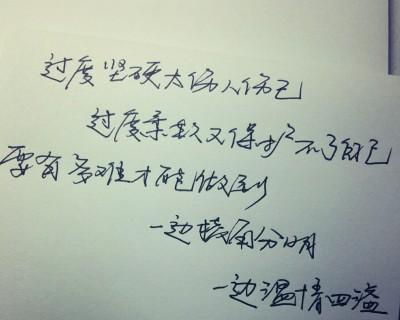 过度坚硬太伤人伤己
过度柔软又保护不了自己
要有多难才能做到
一边棱角分明
一边温情四溢